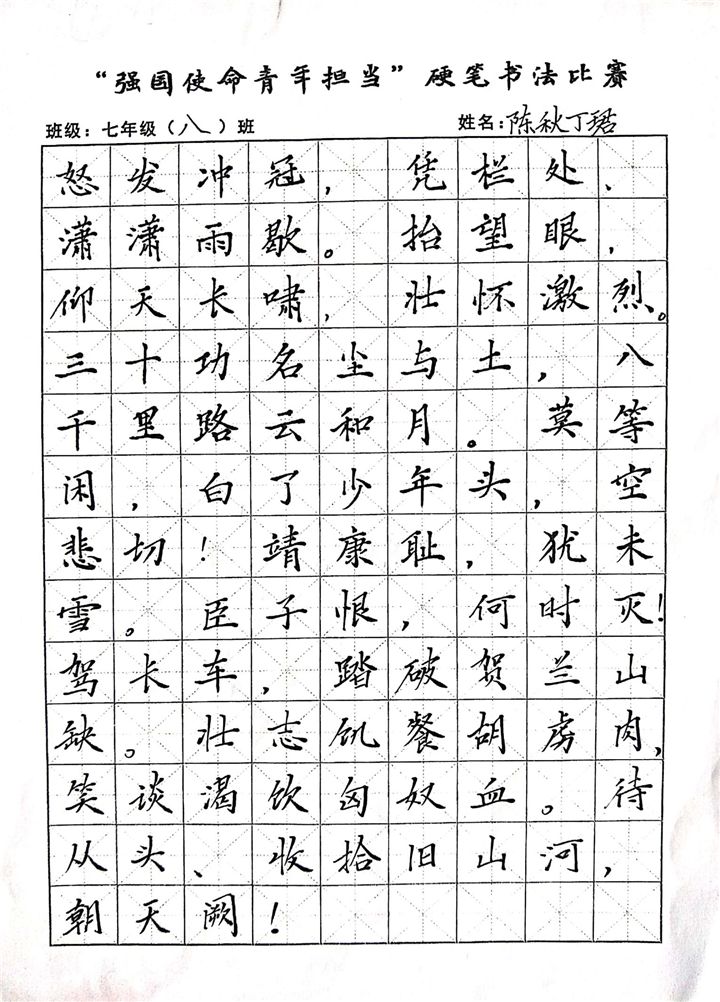 “强国使命青年担当”硬笔书法比赛
班级：七年级（八）班 姓名：陈秋丁珺
怒发冲冠，凭栏处、
潇潇雨歇。抬望眼，
仰天长啸，壮怀激烈。
三十功名尘与土，八
千里路云和月。莫等
闲，白了少年头，空
悲切！靖康耻，犹未
雪。臣子恨，何时灭！
驾长车，踏破贺兰山
缺。壮志饥餐胡虏肉，
笑谈渴饮匈奴血。待
从头、收拾旧山河，
朝天阙！